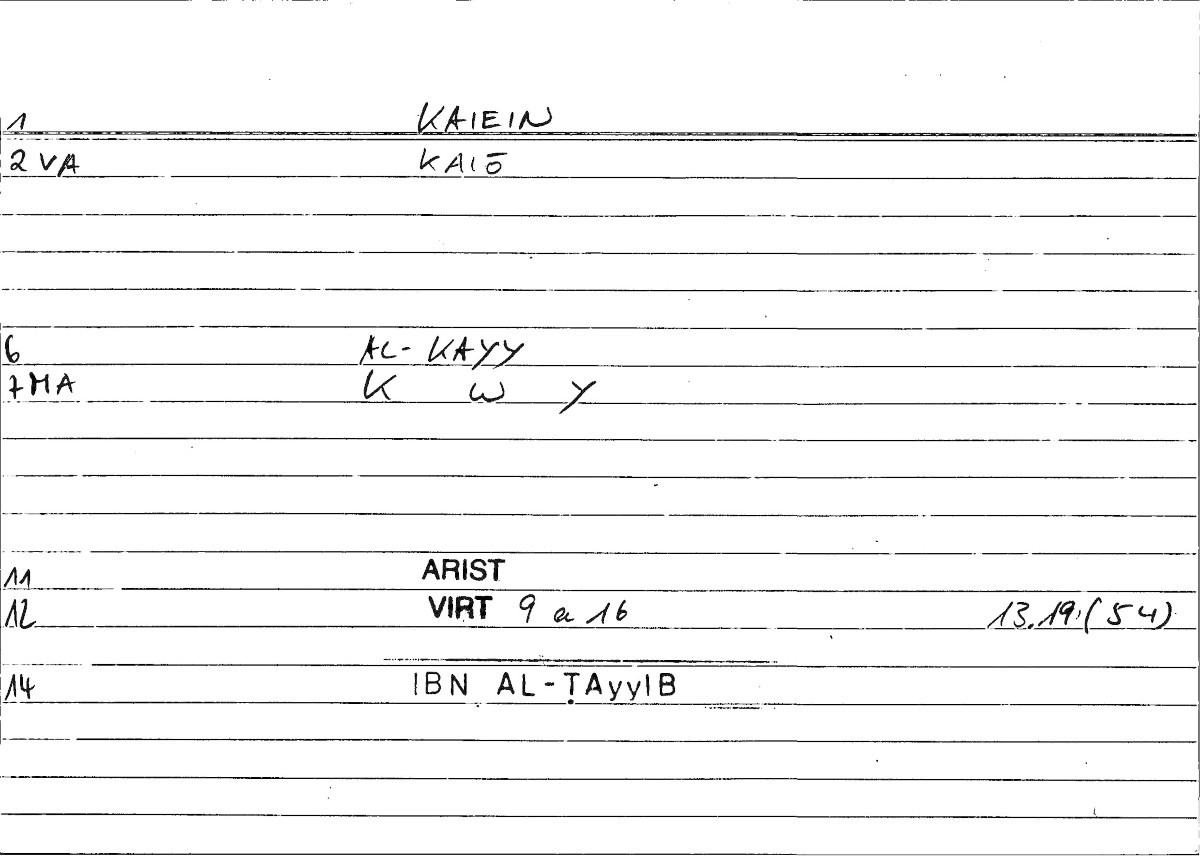 1 KAIEIN
2 VA KAIŌ
6 AL-KAYY
7 MA K W Y
11 ARIST
12 VIRT 9 a 16 13.19,(54)
14 IBN AL-ṬAyyIB